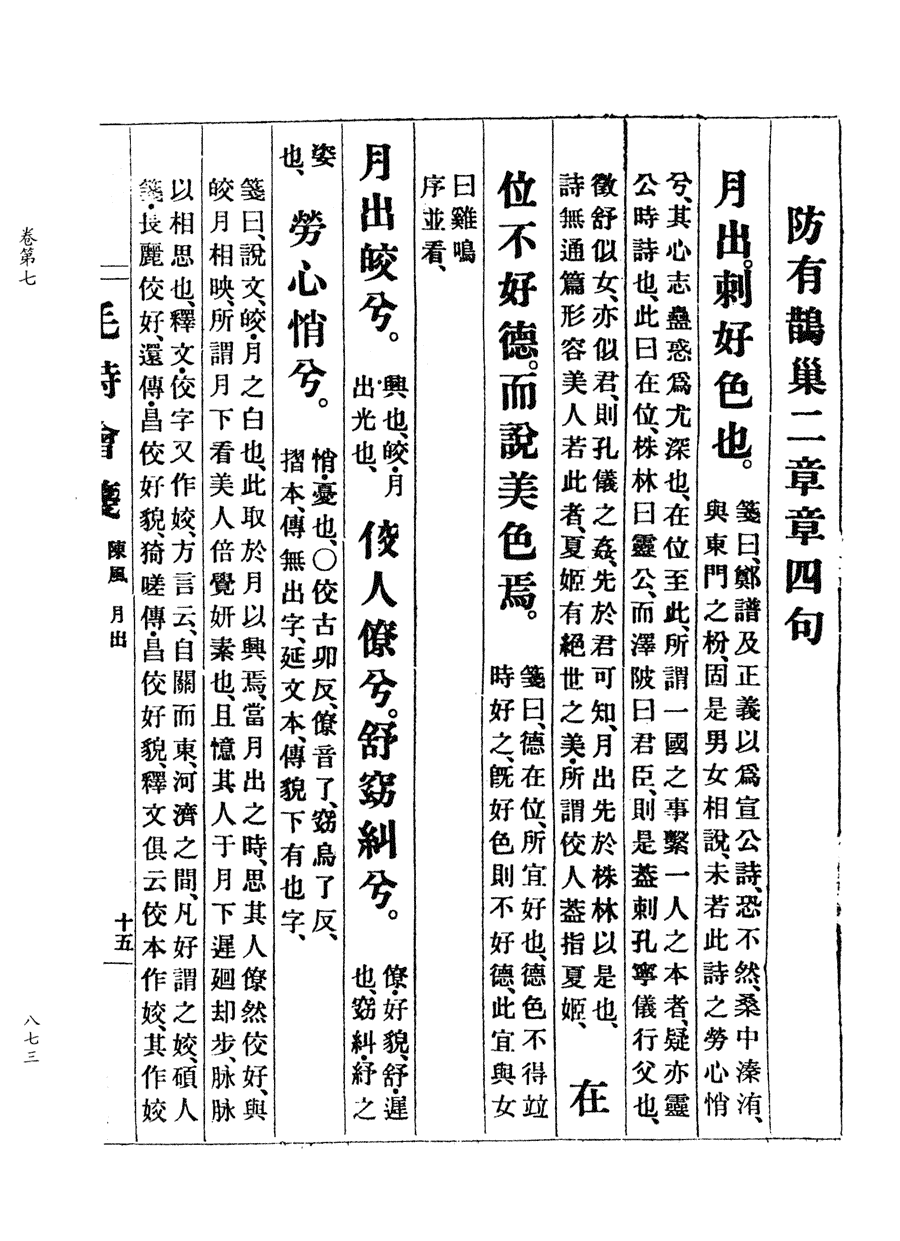 防有鵲巢二章章四句
月出。刺好色也。
箋曰、鄭譜及正義以爲宣公詩、恐不然、桑中溱洧、
與東門之枌、固是男女相說、未若此詩之勞心悄
兮、其心志蠱惑爲尤深也、在位至此、所謂一國之事繫一人之本者、疑亦靈
公時詩也、此曰在位、株林曰靈公、而澤陂曰君臣、則是蓋刺孔寧儀行父也、
徵舒似女、亦似君、則孔儀之姦、先於君可知、月出先於株林以是也、
詩無通篇形容美人若此者、夏姬有絕世之美、所謂佼人蓋指夏姬、
在
位不好德。而說美色焉。
箋曰、德在位、所宜好也、德色不得竝
時好之、既好色則不好德、此宜與女
曰雞鳴
序並看、
月出皎兮。
興也、皎・月
出光也、
佼人僚兮。舒窈糾兮。
僚・好貌、舒・遲
也、窈糾・紓之
姿
也、
勞心悄兮。
悄・憂也、○佼古卯反、僚音了、窈烏了反、
摺本、傳無出字、延文本、傳貌下有也字、
箋曰、說文、皎・月之白也、此取於月以興焉、當月出之時、思其人僚然佼好、與
皎月相映、所謂月下看美人倍覺妍素也、且憶其人于月下遲廻却步、脉脉
以相思也、釋文・佼字又作姣、方言云、自關而東、河濟之間、凡好謂之姣、碩人
箋・長麗佼好、還傳・昌佼好貌、猗嗟傳・昌佼好貌、釋文俱云佼本作姣、其作姣
毛詩會箋
陳風
月出
十五
卷第七
八七三